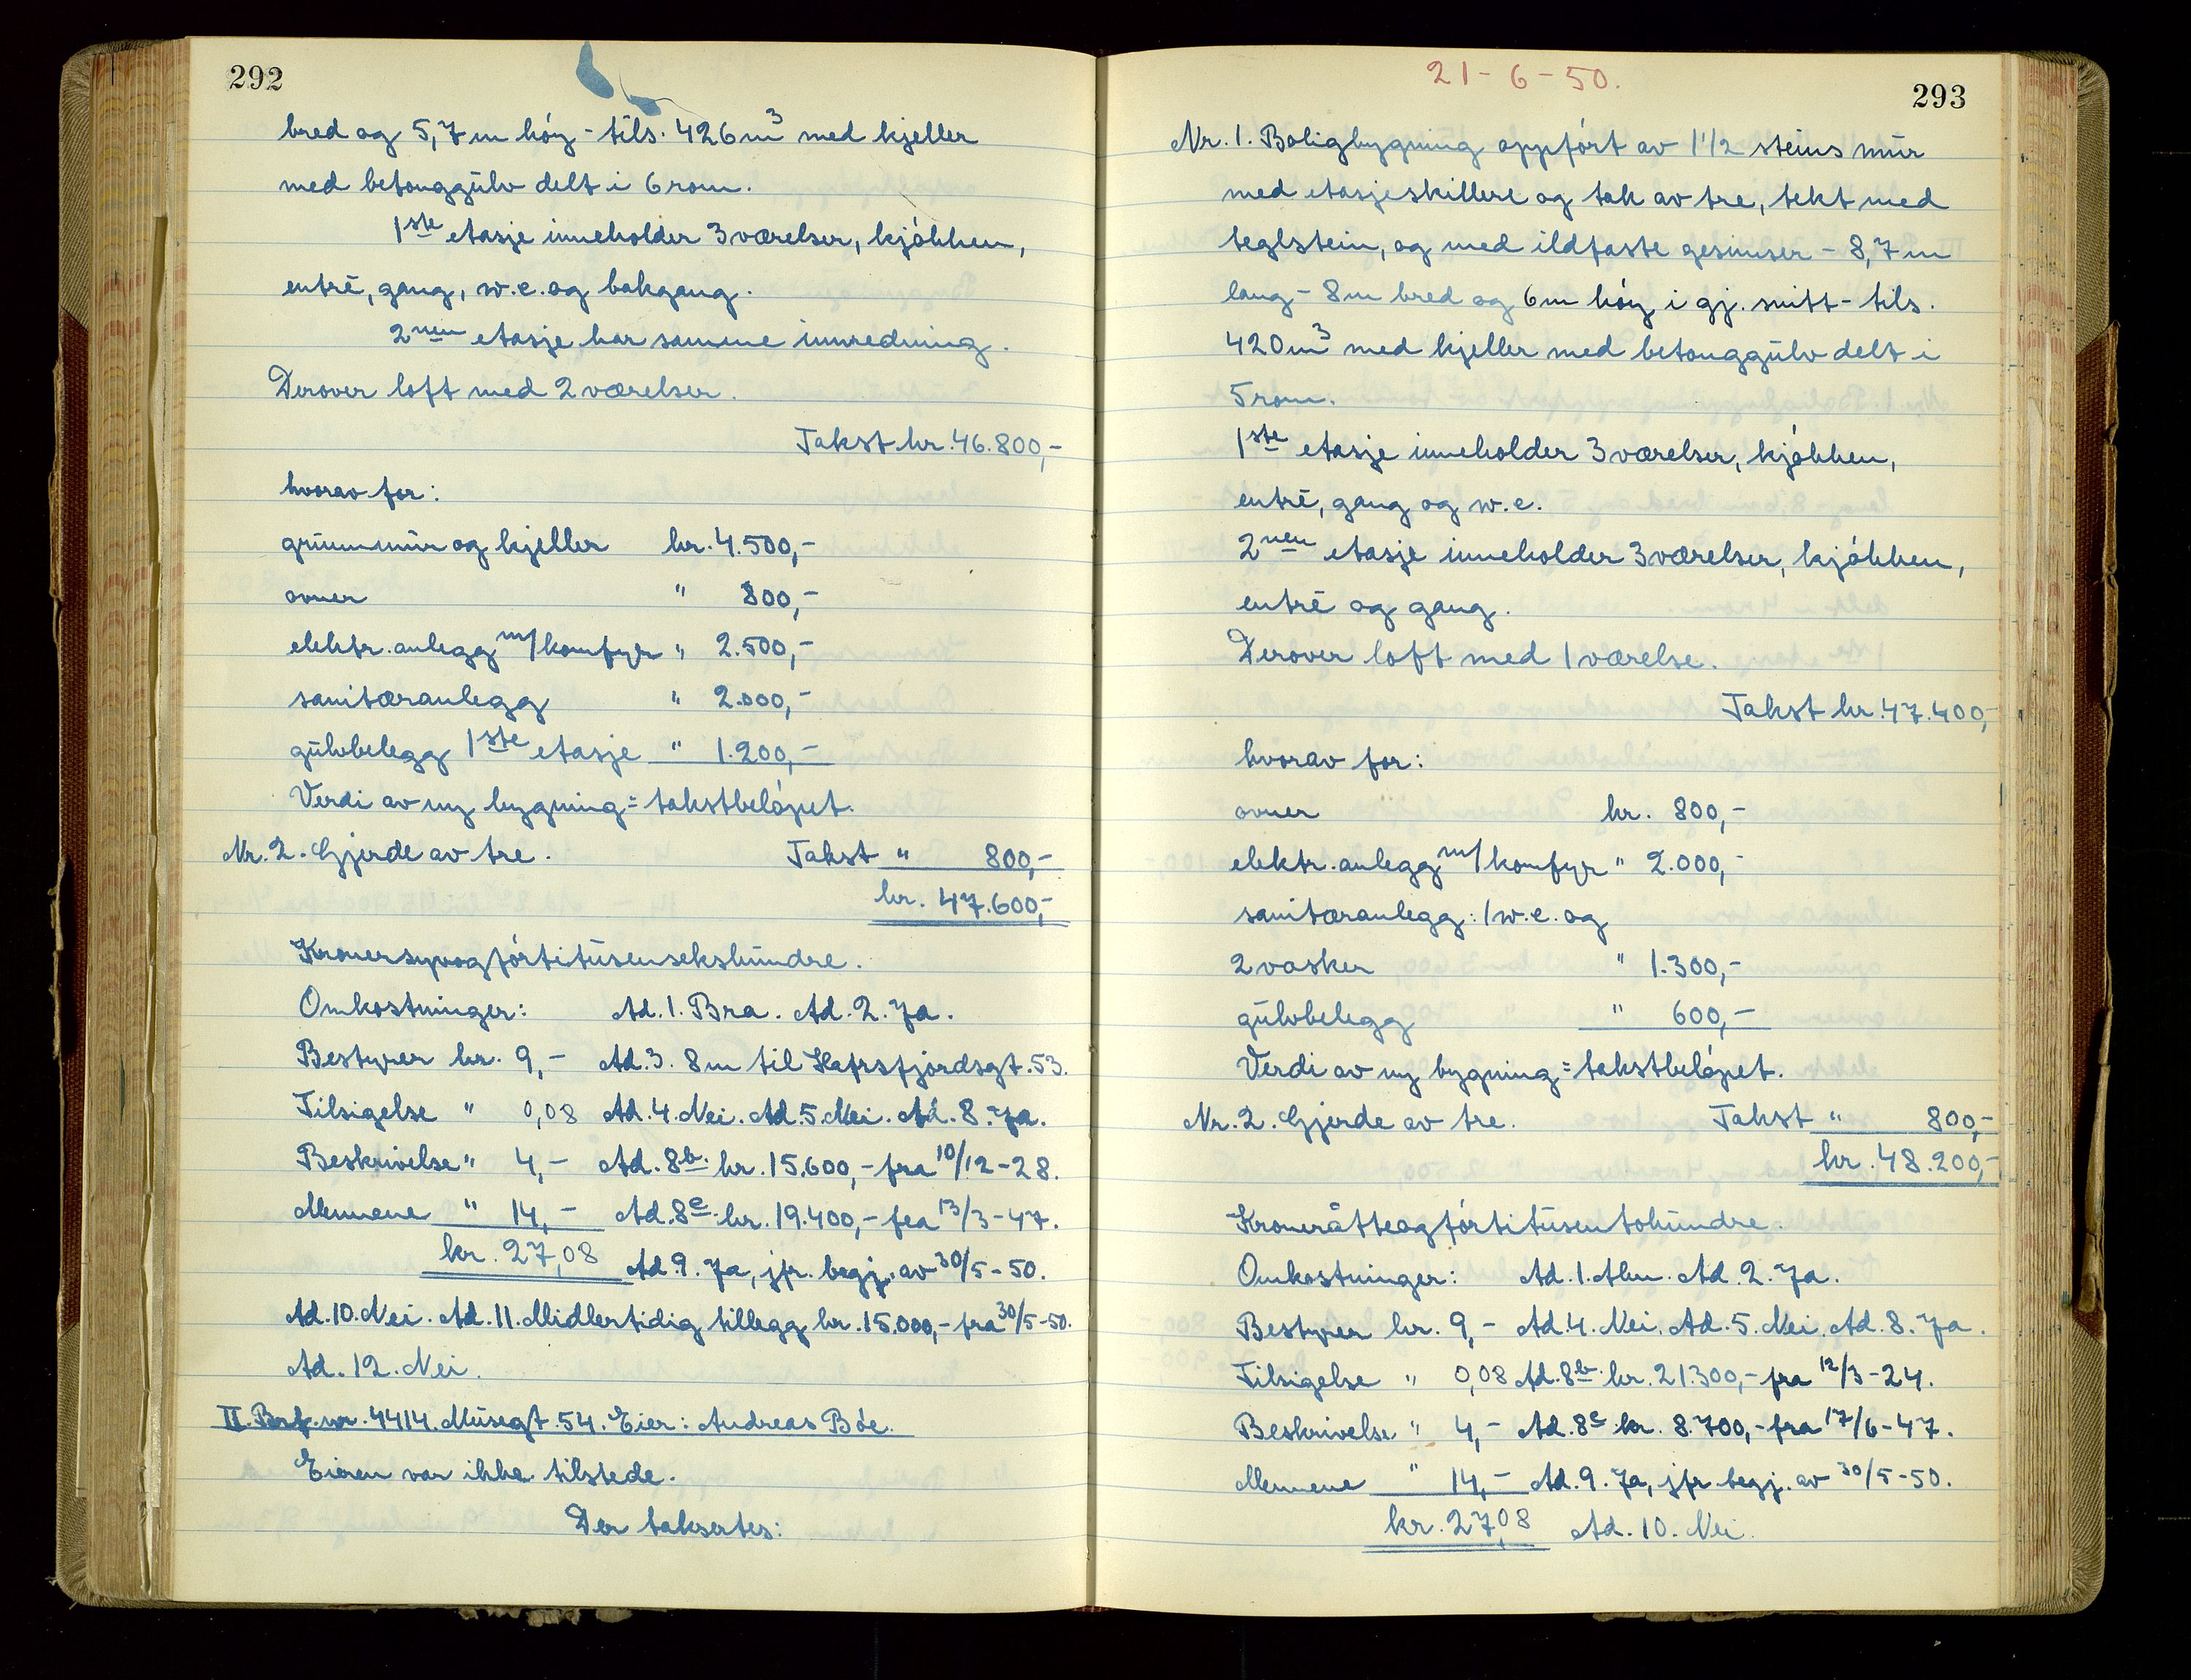 292
bred og 5,7 m høy - tils. 426 m³ med kjeller
med betonggulv delt i 6 rom.
1ste etasje inneholder 3 værelser, kjøkken,
entré, gang, w.c. og bakgang.
2nen etasje har samme innredning.
Derover loft med 2 værelser.
Takst kr. 46.800,-
hvorav for:
grunnmur og kjeller kr. 4.500,-
ovner " 800,-
elektr. anlegg m/komfyr " 2.500,-
sanitæranlegg " 2.000,-
gulvbelegg 1ste etasje " 1.200,-
Verdi av ny bygning = takstbeløpet.
Nr. 2. Gjerde av tre. Takst " 800,-
kr. 47.600,-
Kronersyvogførtitusensekshundre.
Omkostninger: Ad. 1. Bra. Ad. 2. Ja.
Bestyrer kr. 9,- Ad. 3. 8 m til Hafrsfjordsgt. 53.
Tilsigelse " 0,08 Ad. 4. Nei. Ad. 5. Nei. Ad. 8. Ja.
Beskrivelse " 4,- Ad. 8b. kr. 15.600,- fra 10/12-28.
Mennene " 14,- Ad. 8c. kr. 19.400,- fra 13/3-47.
kr. 27,08 Ad. 9. Ja, jfr. begj. av 30/5-50.
Ad. 10. Nei. Ad. 11. Midlertidig tillegg kr. 15.000,- fra 30/5-50.
Ad. 12. Nei.
II. Brf. nr. 4414. Musegt. 54. Eier: Andreas Bøe.
Eieren var ikke tilstede.
Der taksertes:
21-6-50.
293
Nr. 1. Boligbygning oppført av 1 1/2 steins mur
med etasjeskillere og tak av tre, tekt med
teglstein, og med ildfaste gesimser - 8,7 m
lang - 8 m bred og 6 m høy i gj. snitt - tils.
420 m³ med kjeller med betonggulv delt i
5 rom.
1ste etasje inneholder 3 værelser, kjøkken,
entré, gang og w.c.
2nen etasje inneholder 3 værelser, kjøkken,
entré og gang.
Derover loft med 1 værelse.
Takst kr. 47.400,-
hvorav for:
ovner kr. 800,-
elektr. anlegg m/komfyr " 2.000,-
sanitæranlegg: 1 w.c. og
2 vasker " 1.300,-
gulvbelegg " 600,-
Verdi av ny bygning = takstbeløpet.
Nr. 2. Gjerde av tre. Takst " 800,-
kr. 48.200,-
Kroneråtteogførtitusentohundre.
Omkostninger: Ad. 1. Alm. Ad. 2. Ja.
Bestyrer kr. 9,- Ad. 4. Nei. Ad. 5. Nei. Ad. 8. Ja.
Tilsigelse " 0,08 Ad. 8b. kr. 21.300,- fra 12/3-24.
Beskrivelse " 4,- Ad. 8c. kr. 8.700,- fra 17/6-47.
Mennene " 14,- Ad. 9. Ja, jfr begj. av 30/5-50.
kr. 27,08 Ad. 10. Nei.